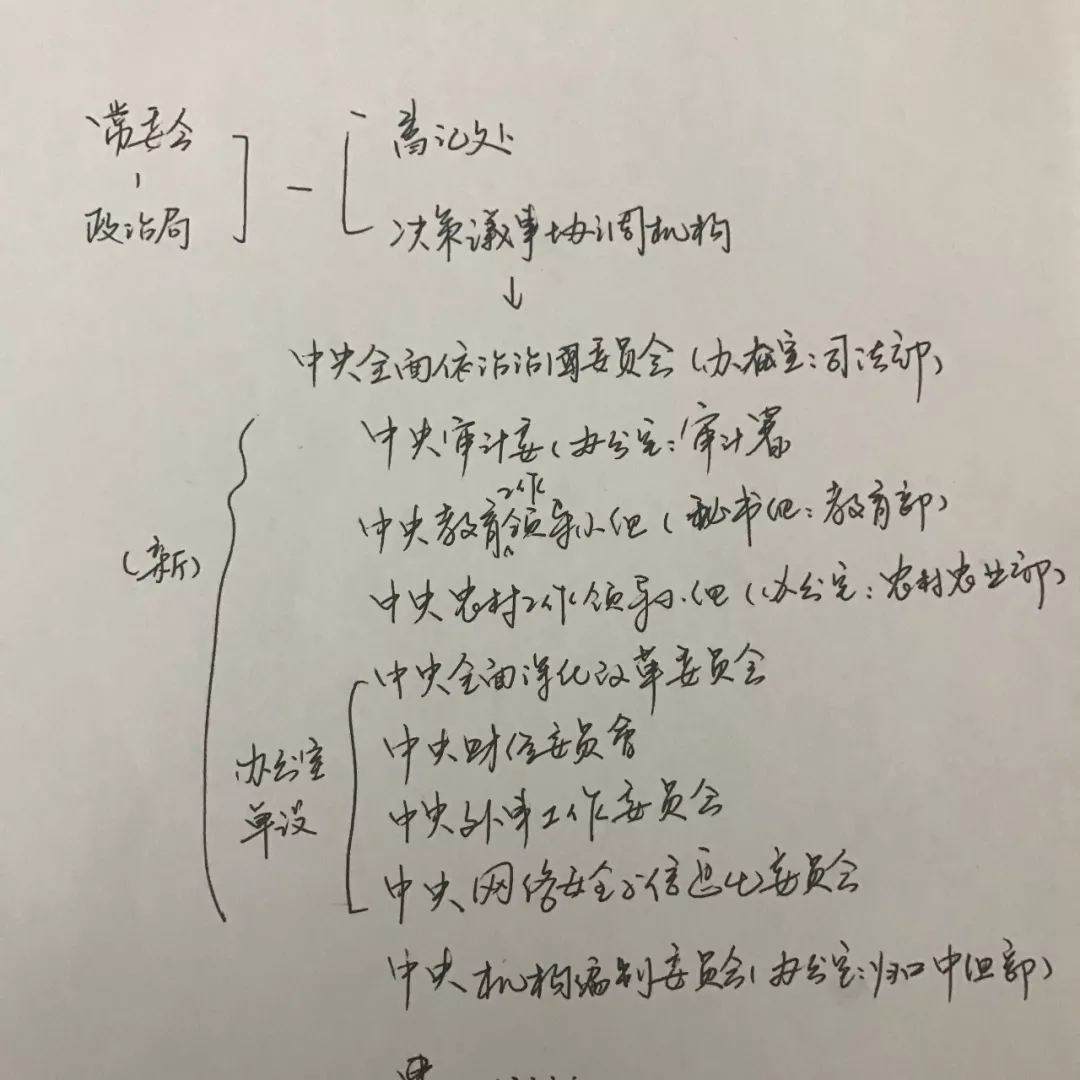 常委会
政治局
书记处
决策議事协调机构
↓
中央全面依法治國委员会(办公室:司法部)
中央审计委(办公室:审计署
中央教育工作领导小组(秘书组:教育部)
中央农村工作领导小组(办公室:农村农业部)
(新)
中央全面深化改革委员会
中央财经委员會
办公室
单设
中央外事工作委员会
中央网络安全与信息化委员会
中央机构编制委员会(办公室:归口中组部)